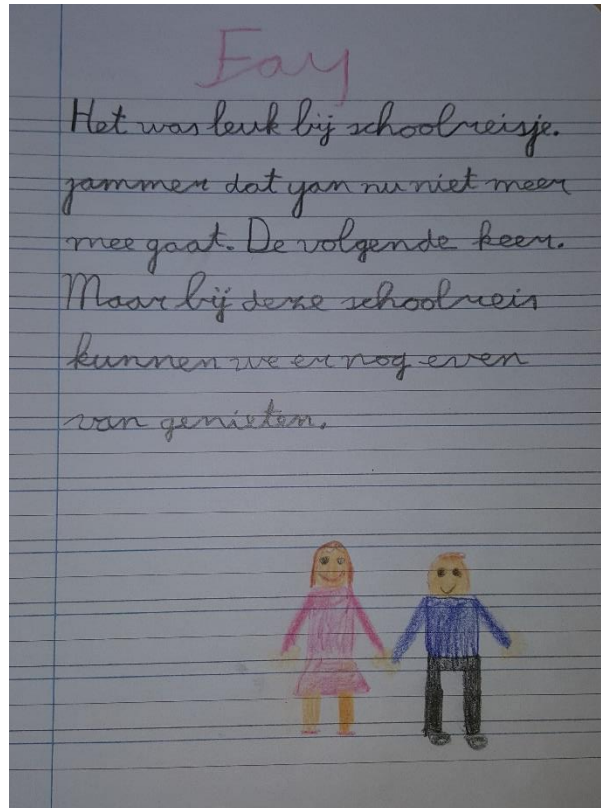 Fay
Het was leuk bij schoolreisje.
jammer dat yan nu niet meer
mee gaat. De volgende keer.
Maar bij deze schoolreis
kunnen we er nog even
van genieten.